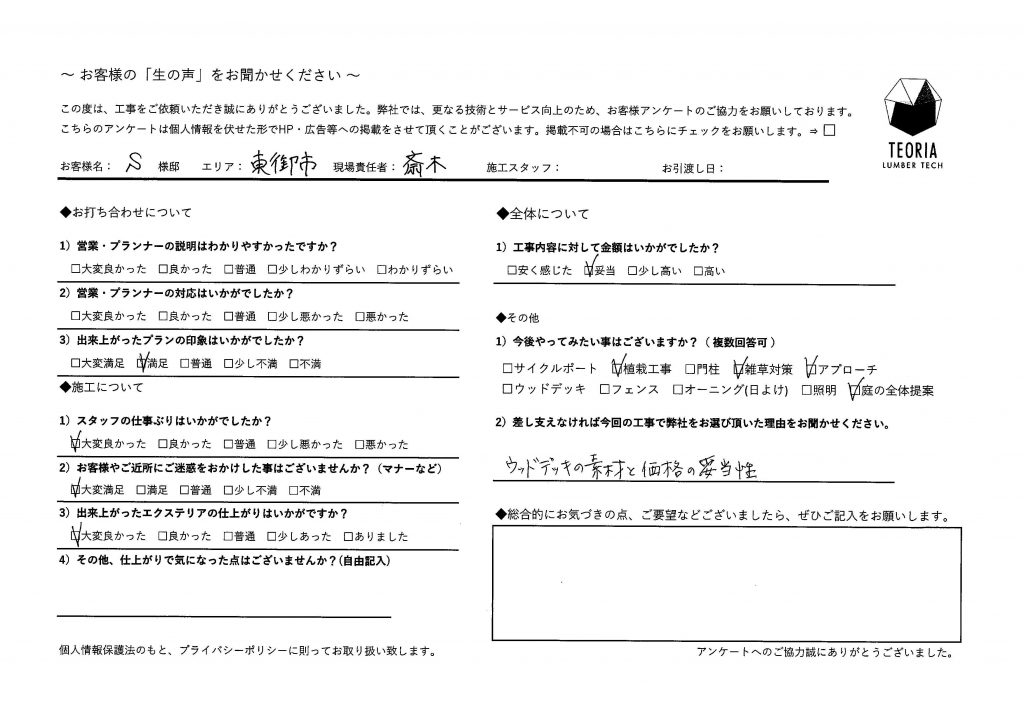 ～ お客様の「生の声」をお聞かせください ～
この度は、工事をご依頼いただき誠にありがとうございました。弊社では、更なる技術とサービス向上のため、お客様アンケートのご協力をお願いしております。
こちらのアンケートは個人情報を伏せた形でHP・広告等への掲載をさせて頂くことがございます。掲載不可の場合はこちらにチェックをお願いします。⇒ □
TEORIA
LUMBER TECH
お客様名： S 様邸 エリア： 東御市 現場責任者： 斎木 施工スタッフ： お引渡し日：
◆お打ち合わせについて
1）営業・プランナーの説明はわかりやすかったですか？
□大変良かった □良かった □普通 □少しわかりずらい □わかりずらい
2）営業・プランナーの対応はいかがでしたか？
□大変良かった □良かった □普通 □少し悪かった □悪かった
3）出来上がったプランの印象はいかがでしたか？
□大変満足 ☑満足 □普通 □少し不満 □不満
◆施工について
1）スタッフの仕事ぶりはいかがでしたか？
☑大変良かった □良かった □普通 □少し悪かった □悪かった
2）お客様やご近所にご迷惑をおかけした事はございませんか？（マナーなど）
☑大変満足 □満足 □普通 □少し不満 □不満
3）出来上がったエクステリアの仕上がりはいかがですか？
☑大変良かった □良かった □普通 □少しあった □ありました
4）その他、仕上がりで気になった点はございませんか？(自由記入)
個人情報保護法のもと、プライバシーポリシーに則ってお取り扱い致します。
◆全体について
1）工事内容に対して金額はいかがでしたか？
□安く感じた ☑妥当 □少し高い □高い
◆その他
1）今後やってみたい事はございますか？（ 複数回答可 ）
□サイクルポート ☑植栽工事 □門柱 ☑雑草対策 ☑アプローチ
□ウッドデッキ □フェンス □オーニング(日よけ) □照明 ☑庭の全体提案
2）差し支えなければ今回の工事で弊社をお選び頂いた理由をお聞かせください。
ウッドデッキの素材と価格の妥当性
◆総合的にお気づきの点、ご要望などございましたら、ぜひご記入をお願いします。
アンケートへのご協力誠にありがとうございました。